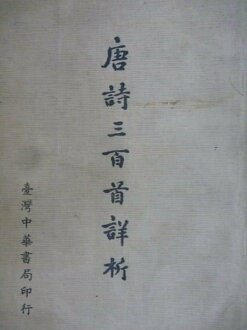 唐詩三百首詳析
臺灣中華書局印行